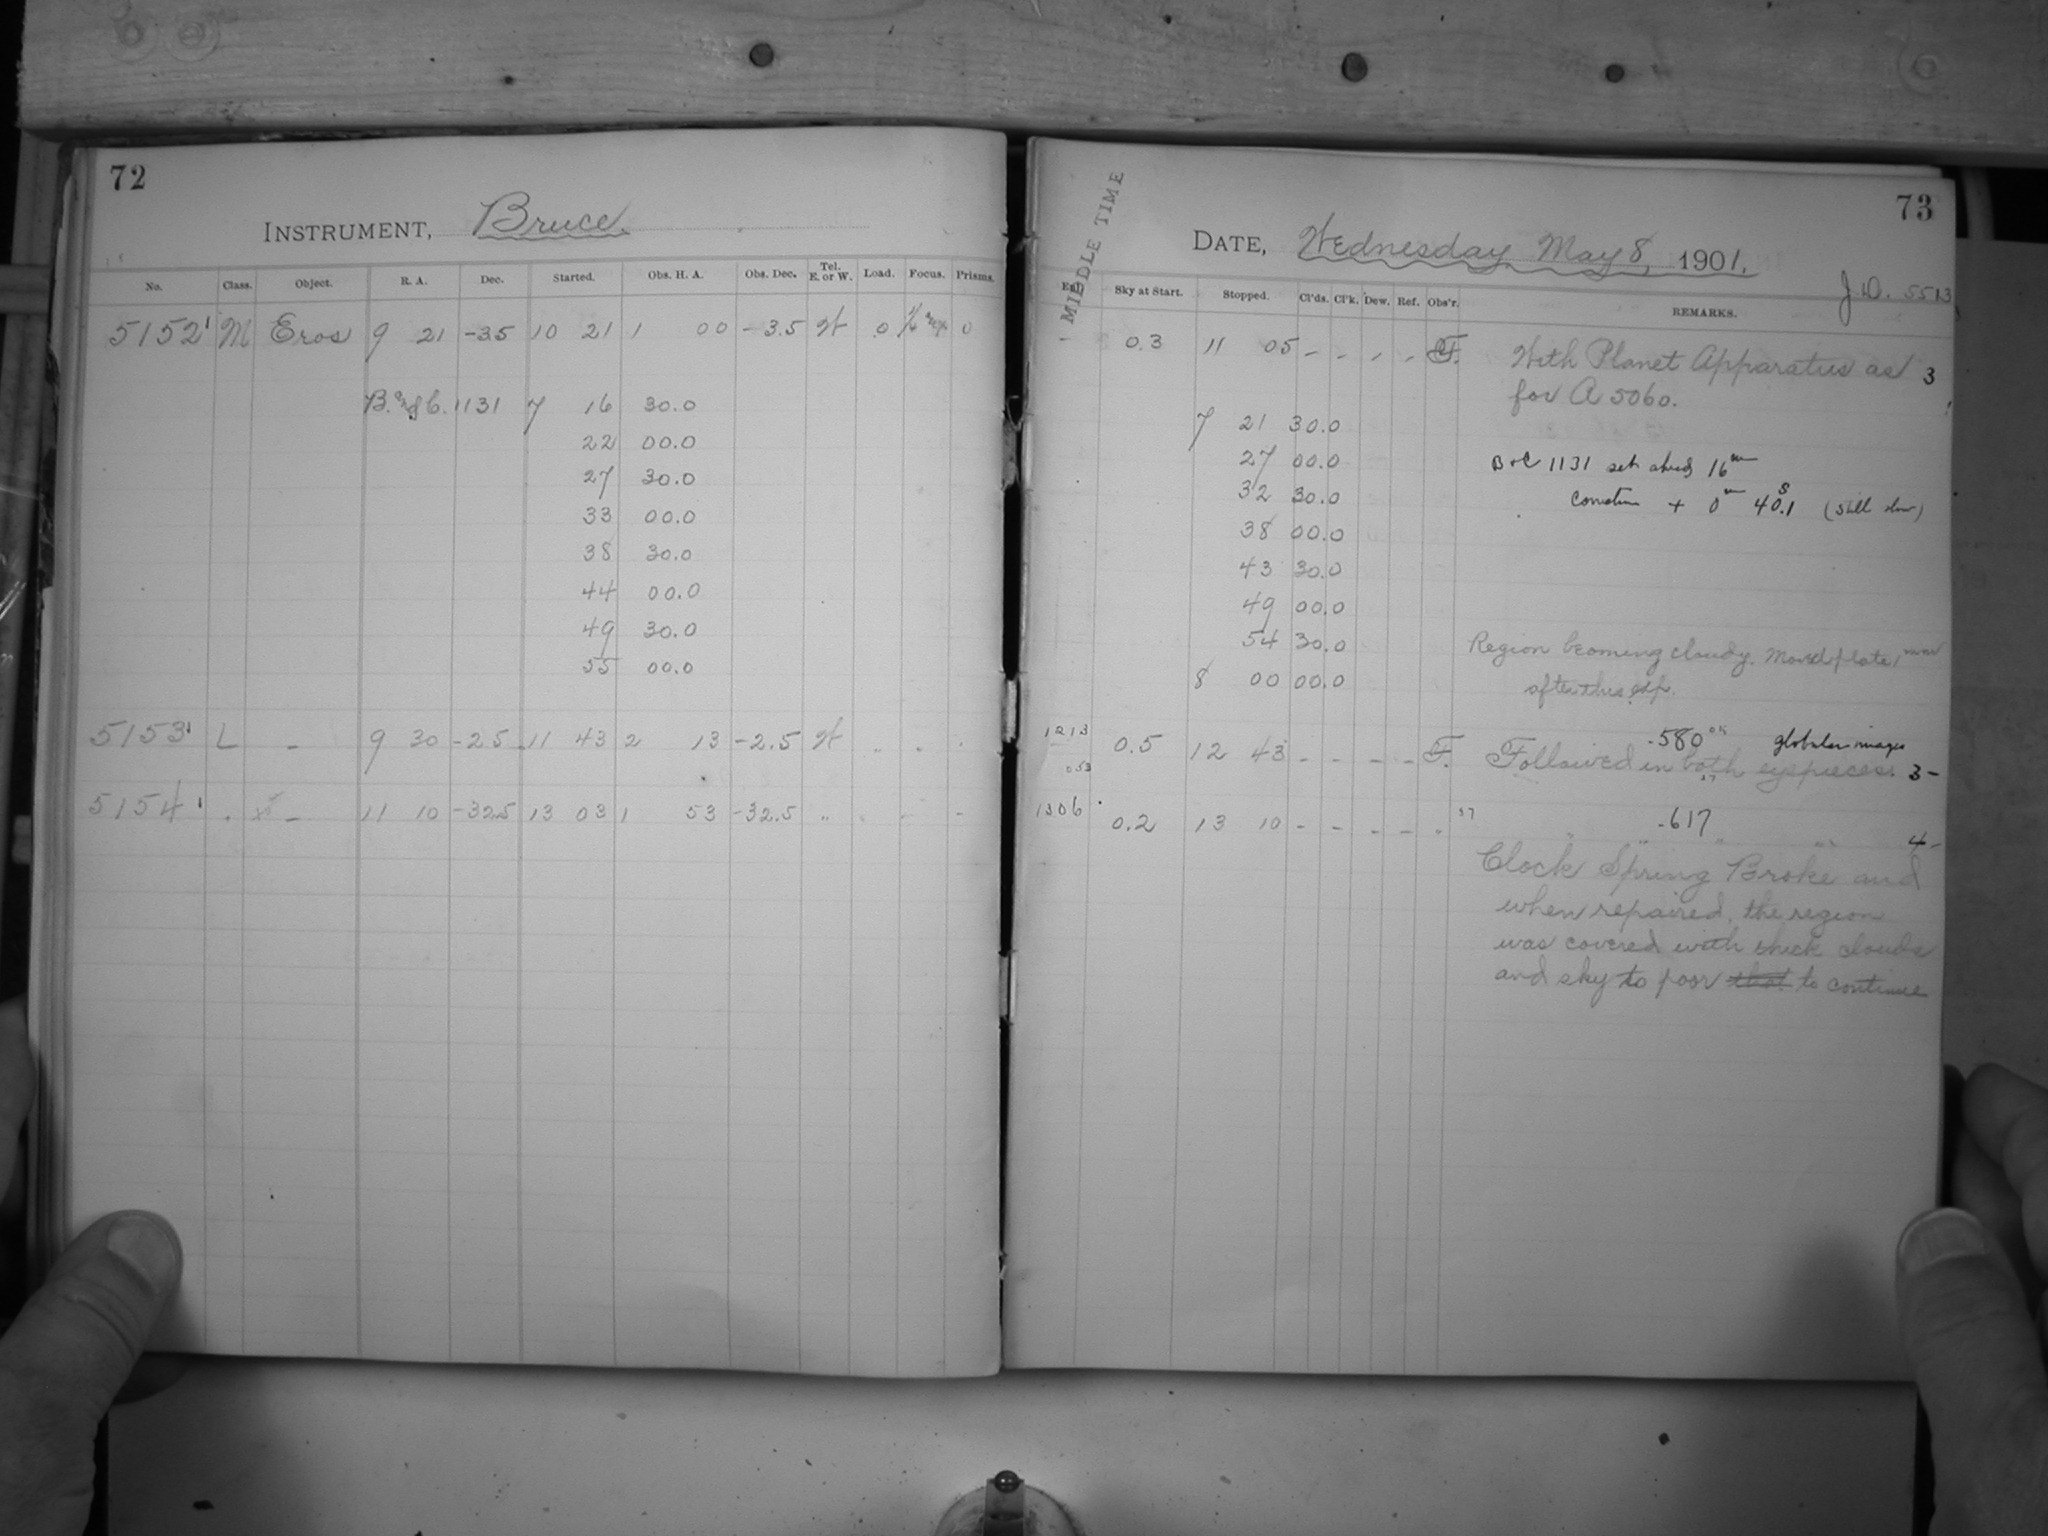 72
INSTRUMENT, Bruce.
No. Class. Object. R. A. Dec. Started. Obs. H. A. Obs. Dec. Tel. E. or W. Load. Focus. Prisms.
5152 M Eros 9 21 -3.5 10 21 1 00 -3.5 W 0 0
B. and C. 1131 7 16 30.0
22 00.0
27 30.0
33 00.0
38 30.0
44 00.0
49 30.0
55 00.0
5153 L - 9 30 -2.5 11 43 2 13 -2.5 W
5154 - 11 10 -32.5 13 03 1 53 -32.5 "
73
MIDDLE TIME
DATE, Wednesday May 8, 1901.
J.D. 5513
Sky at Start. Stopped. Cl'ds. Cl'k. Dew. Ref. Obs'r. REMARKS.
0.3 11 05 - - - - F. With Planet Apparatus as 3
for A 5060.
7 21 30.0
27 00.0
B & C 1131 set ahead 16m
32 30.0
Correction + 0m 40.1s (still slow)
38 00.0
43 30.0
49 00.0
54 30.0
Region becoming cloudy. Moved plate 1 mm
8 00 00.0
after this exp.
-580 ok globular images
1213 0.5 12 43 - - - - F. Followed in both eyepieces. 3-
053
1306 0.2 13 10 - - - - 57 -617
" " " 4-
Clock Spring Broke and
when repaired, the region
was covered with thick clouds
and sky to poor that to continue